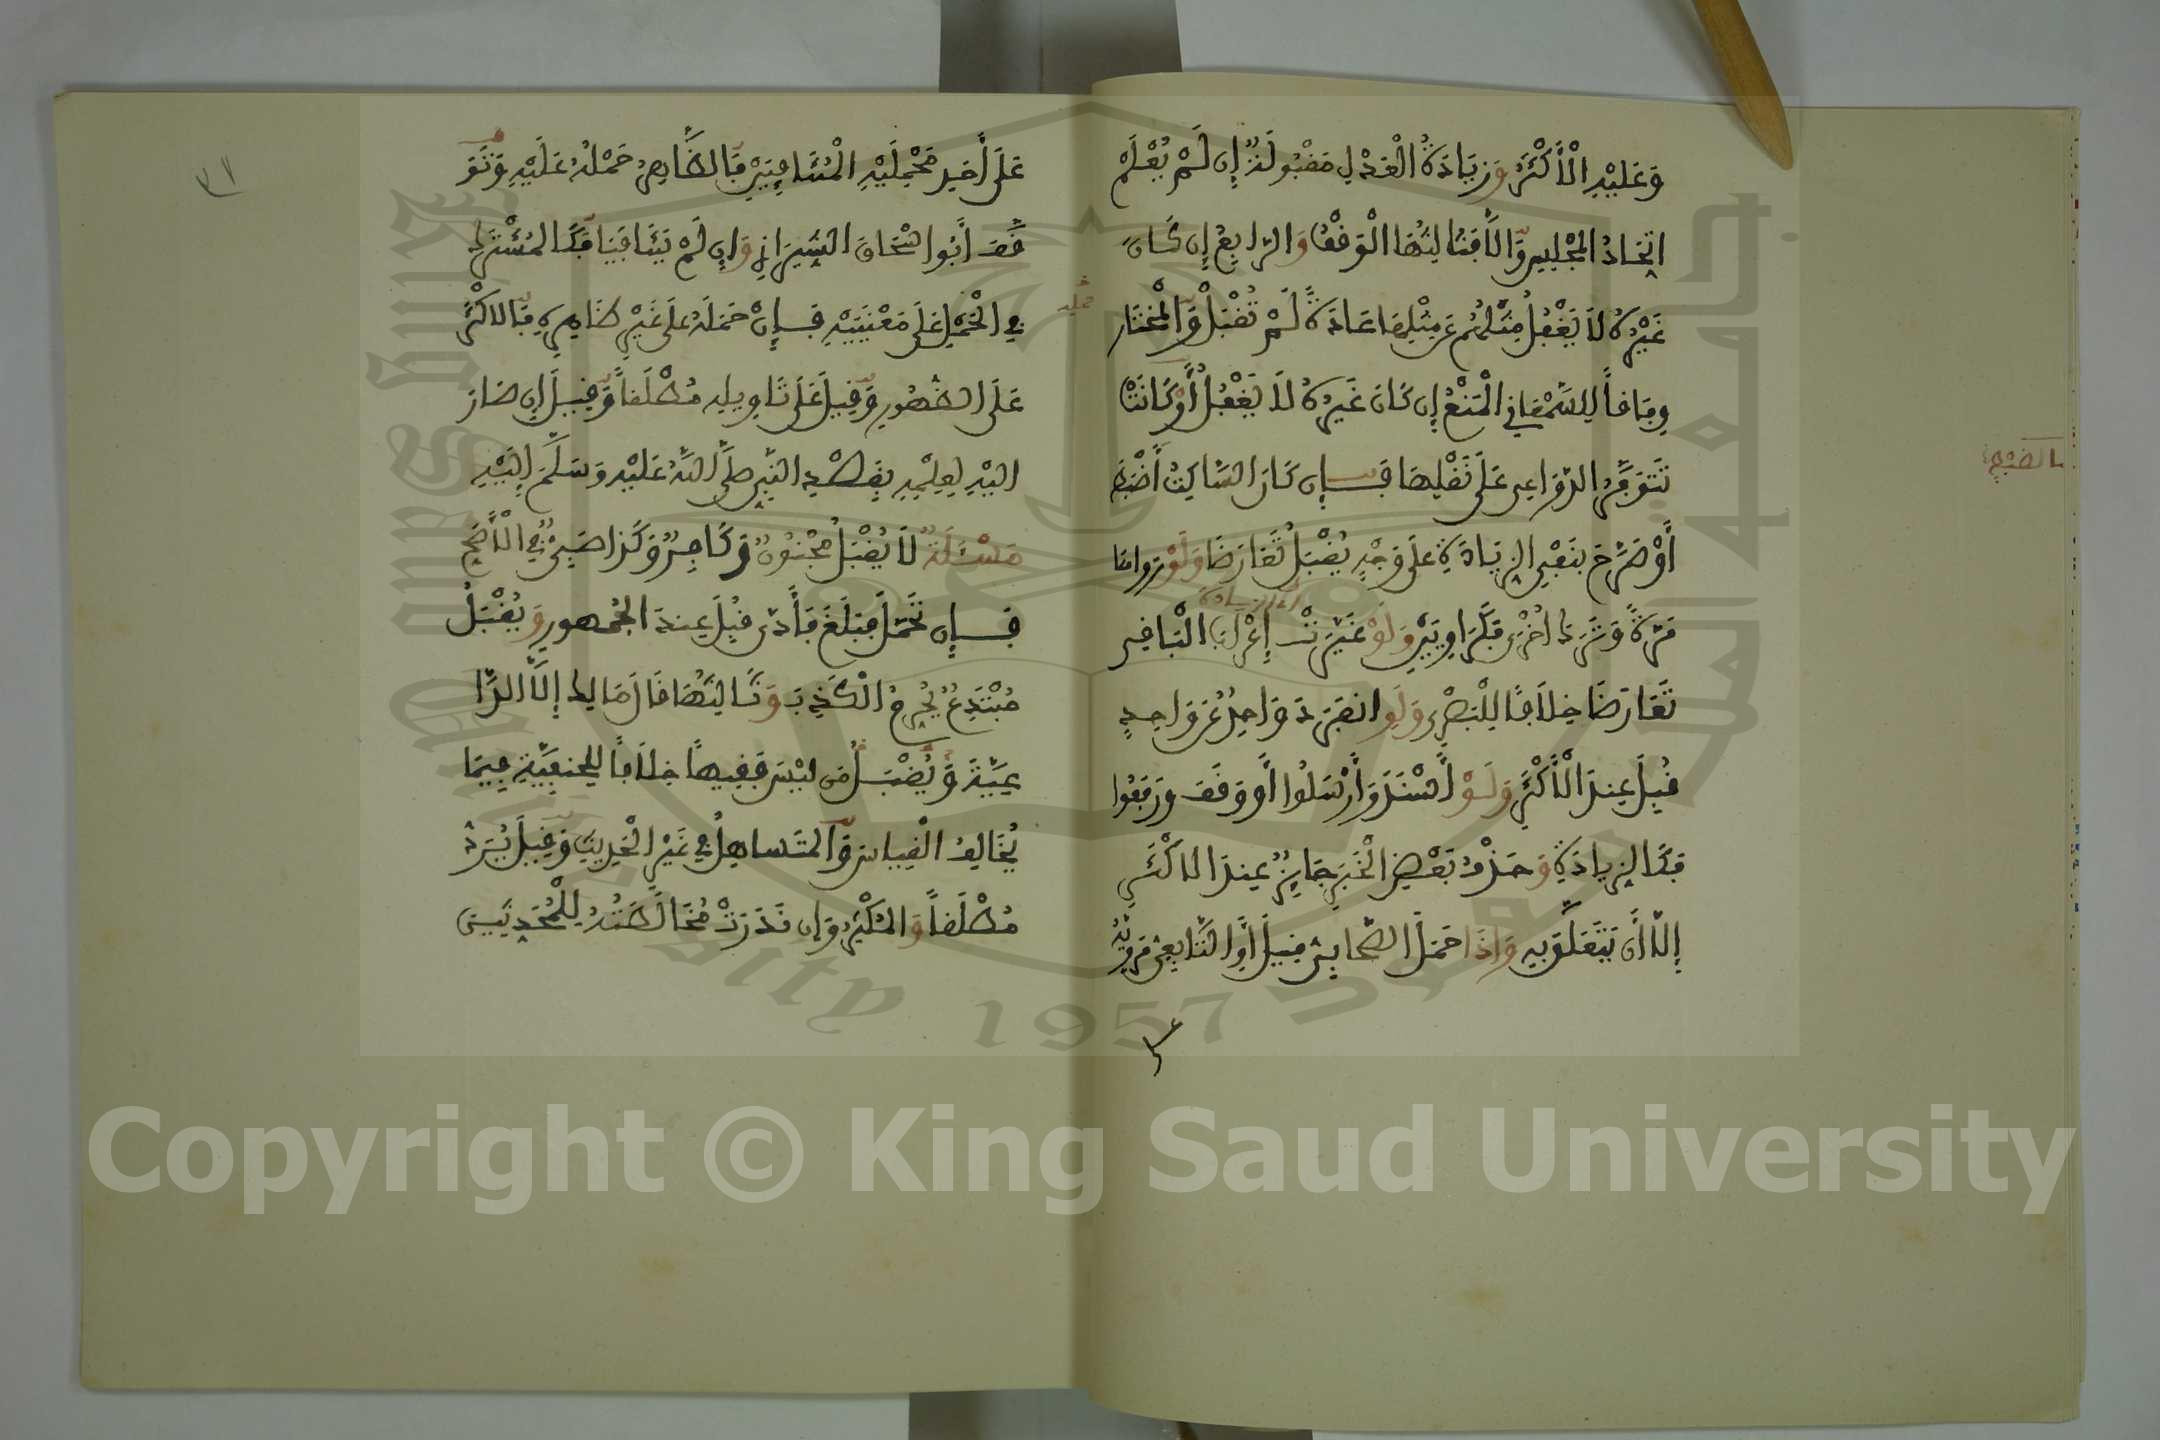 وَعَلَيْهِ الْأَكْثَرُ وَزِيَادَةُ الْعَدْلِ مَقْبُولَةٌ إِن لَمْ يُعْلَمْ
اتِّحَادُ الْمَجْلِسِ وَإِلَّا فَثَالِثُهَا الْوَقْفُ وَالرَّابِعُ إِن كَانَ
غَيْرُهُ لَا يَغْفُلُ مِثْلُهُمْ عَن مِثْلِهَا عَادَةً لَمْ تُقْبَلْ وَالْمُخْتَارُ
وِفَاقاً لِلسَّمْعَانِي الْمَنْعُ إِن كَانَ غَيْرُهُ لَا يَغْفُلُ أَوْ كَانَتْ
تَتَوَفَّرُ الدَّوَاعِي عَلَى نَقْلِهَا فَإِن كَانَ السَّاكِتُ أَضْبَطَ
أَوْ صَرَّحَ بِنَفْيِ الزِّيَادَةِ عَلَى وَجْهٍ يُقْبَلُ تَعَارَضَا وَلَوْ رَوَاهَا
مَرَّةً وَتَرَكَ أُخْرَى فَكَرَاوِيَيْنِ وَلَوْ غَيَّرَتْ إِعْرَابَ الْبَاقِي
تَعَارَضَا خِلَافًا لِلْبَصْرِي وَلَوِ انفَرَدَ وَاحِدٌ عَن وَاحِدٍ
قُبِلَ عِندَ الْأَكْثَرِ وَلَوْ أَسْنَدَ وَأَرْسَلُوا أَو وَقَفَ وَرَفَعُوا
فَكَالزِّيَادَةِ وَحَذْفُ بَعْضِ الْخَبَرِ جَائِزٌ عِندَ الْأَكْثَرِ
إِلَّا أَن يَتَعَلَّقَ بِهِ وَإِذَا حَمَلَ الصَّحَابِيُّ قِيلَ أَوِ التَّابِعِيُّ مَرْوِيَّهُ
عَلَى
عَلَى أَحَدِ مَحْمِلَيْهِ الْمُتَنَافِيَيْنِ فَالظَّاهِرُ حَمْلُهُ عَلَيْهِ وَتَوَ
قَّفَ أَبُو إِسْحَاقَ الشِّيرَازِي وَإِن لَمْ يَتَنَافَيَا فَكَالْمُشْتَرَكِ
فِي الْحَمْلِ عَلَى مَعْنَيَيْهِ فَإِنْ حَمَلَهُ عَلَى غَيْرِ ظَاهِرِهِ فَالْأَكْثَرُ
عَلَى الظُّهُورِ وَقِيلَ عَلَى تَاوِيلِهِ مُطْلَقاً وَقِيلَ إِن صَارَ
إِلَيْهِ لِعِلْمِهِ بِقَصْدِ النَّبِيِّ صَلَّى اللَّهُ عَلَيْهِ وَسَلَّمَ إِلَيْهِ
مَسْئَلَةٌ لَا يُقْبَلُ مَجْنُونٌ وَكَافِرٌ وَكَذَا صَبِيٌّ فِي الْأَصَحِّ
فَإِن تَحَمَّلَ فَبَلَغَ فَأَدَّى قُبِلَ عِندَ الْجُمْهُورِ وَيُقْبَلُ
مُبْتَدِعٌ يُحَرِّمُ الْكَذِبَ وَثَالِثُهَا قَالَ مَالِكٌ إِلَّا الدَّا
عِيَةَ وَيُقْبَلُ مَن لَيْسَ فَقِيهاً خِلَافاً لِلْحَنَفِيَّةِ فِيمَا
يُخَالِفُ الْقِيَاسَ وَالْمُتَسَاهِلُ فِي غَيْرِ الْحَدِيثِ وَقِيلَ يُرَدُّ
مُطْلَقاً وَالْمُكْثِرُ وَإِن نَدَرَتْ مُخَالَطَتُهُ لِلْمُحَدِّثِينَ
Copyright © King Saud University
1957